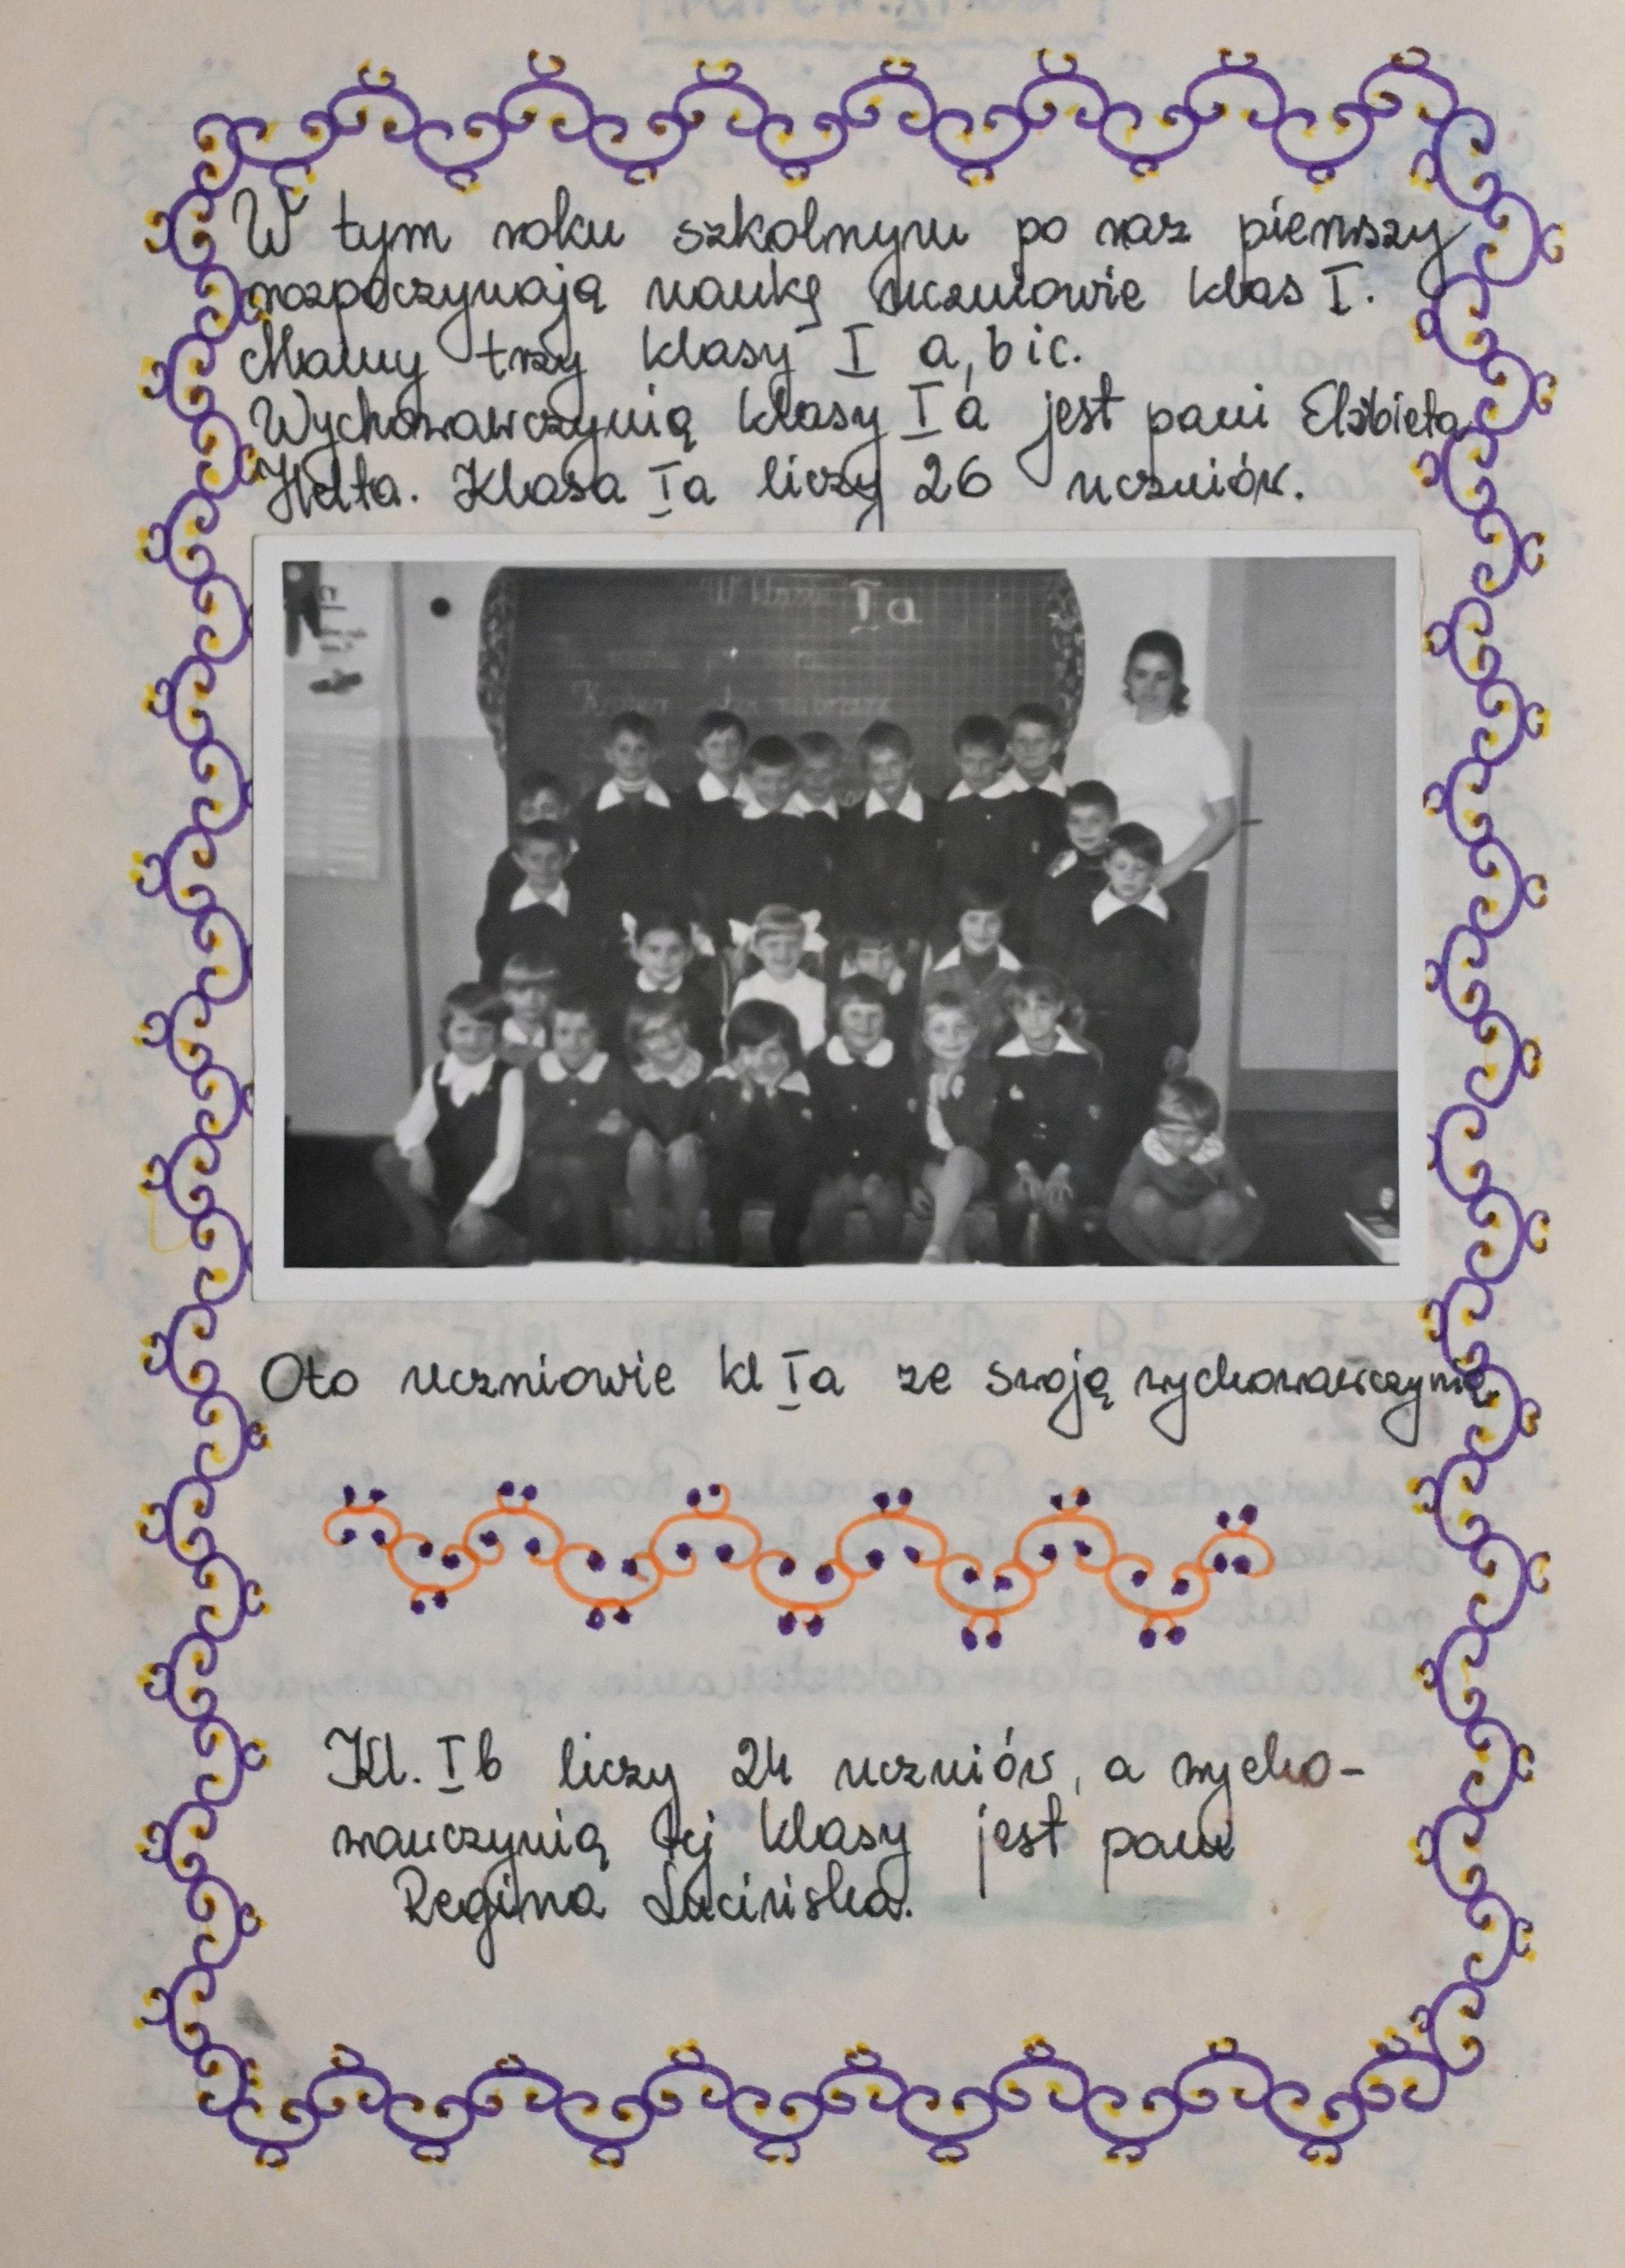 W tym roku szkolnym po raz pierwszy
rozpoczynają naukę uczniowie klas I.
Mamy trzy klasy I a, b i c.
Wychowawczynią klasy I a jest pani Elżbieta
Helta. Klasa Ia liczy 26 uczniów.
W klasie Ia
Oto uczniowie kl Ia ze swoją wychowawczynią
Kl. Ib liczy 24 uczniów, a wycho-
wawczynią tej klasy jest pani
Regina Łucińska.